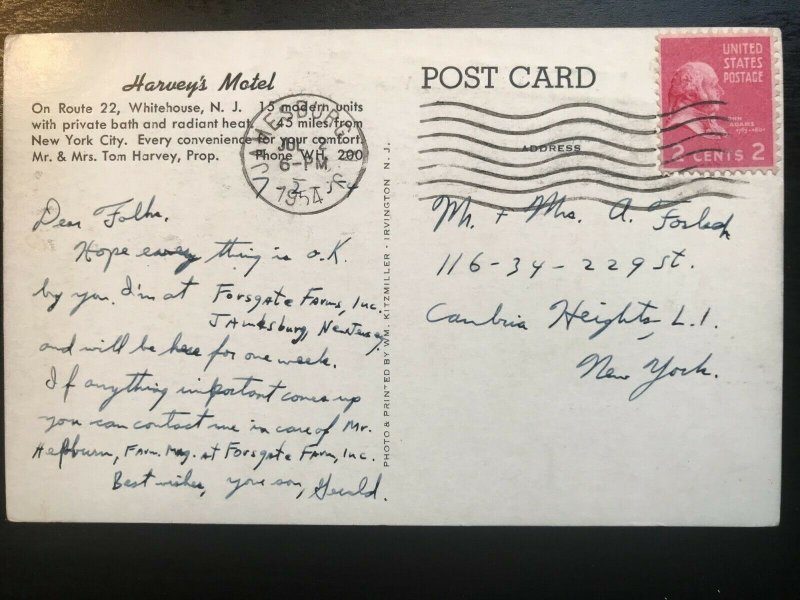 Harvey's Motel
On Route 22, Whitehouse, N. J. 15 modern units
with private bath and radiant heat. 45 miles from
New York City. Every convenience for your comfort.
Mr. & Mrs. Tom Harvey, Prop. Phone WH. 200
JAMESBURG N.J.
6-PM
1954
Dear Folks.
Hope every thing is O.K.
by you. I'm at Forsgate Farms, Inc.
Jamesburg, New Jersey,
and will be here for one week.
If anything important comes up
you can contact me in care of Mr.
Hepburn, Farm Mag. at Forsgate Farm, Inc.
Best wishes, your son, Gerald.
PHOTO & PRINTED BY WM. KITZMILLER - IRVINGTON N. J.
POST CARD
ADDRESS
UNITED
STATES
POSTAGE
JOHN
ADAMS
2 CENTS 2
Mr. + Mrs. A.
116-34-229 St.
Cambria Heights, L.I.
New York.